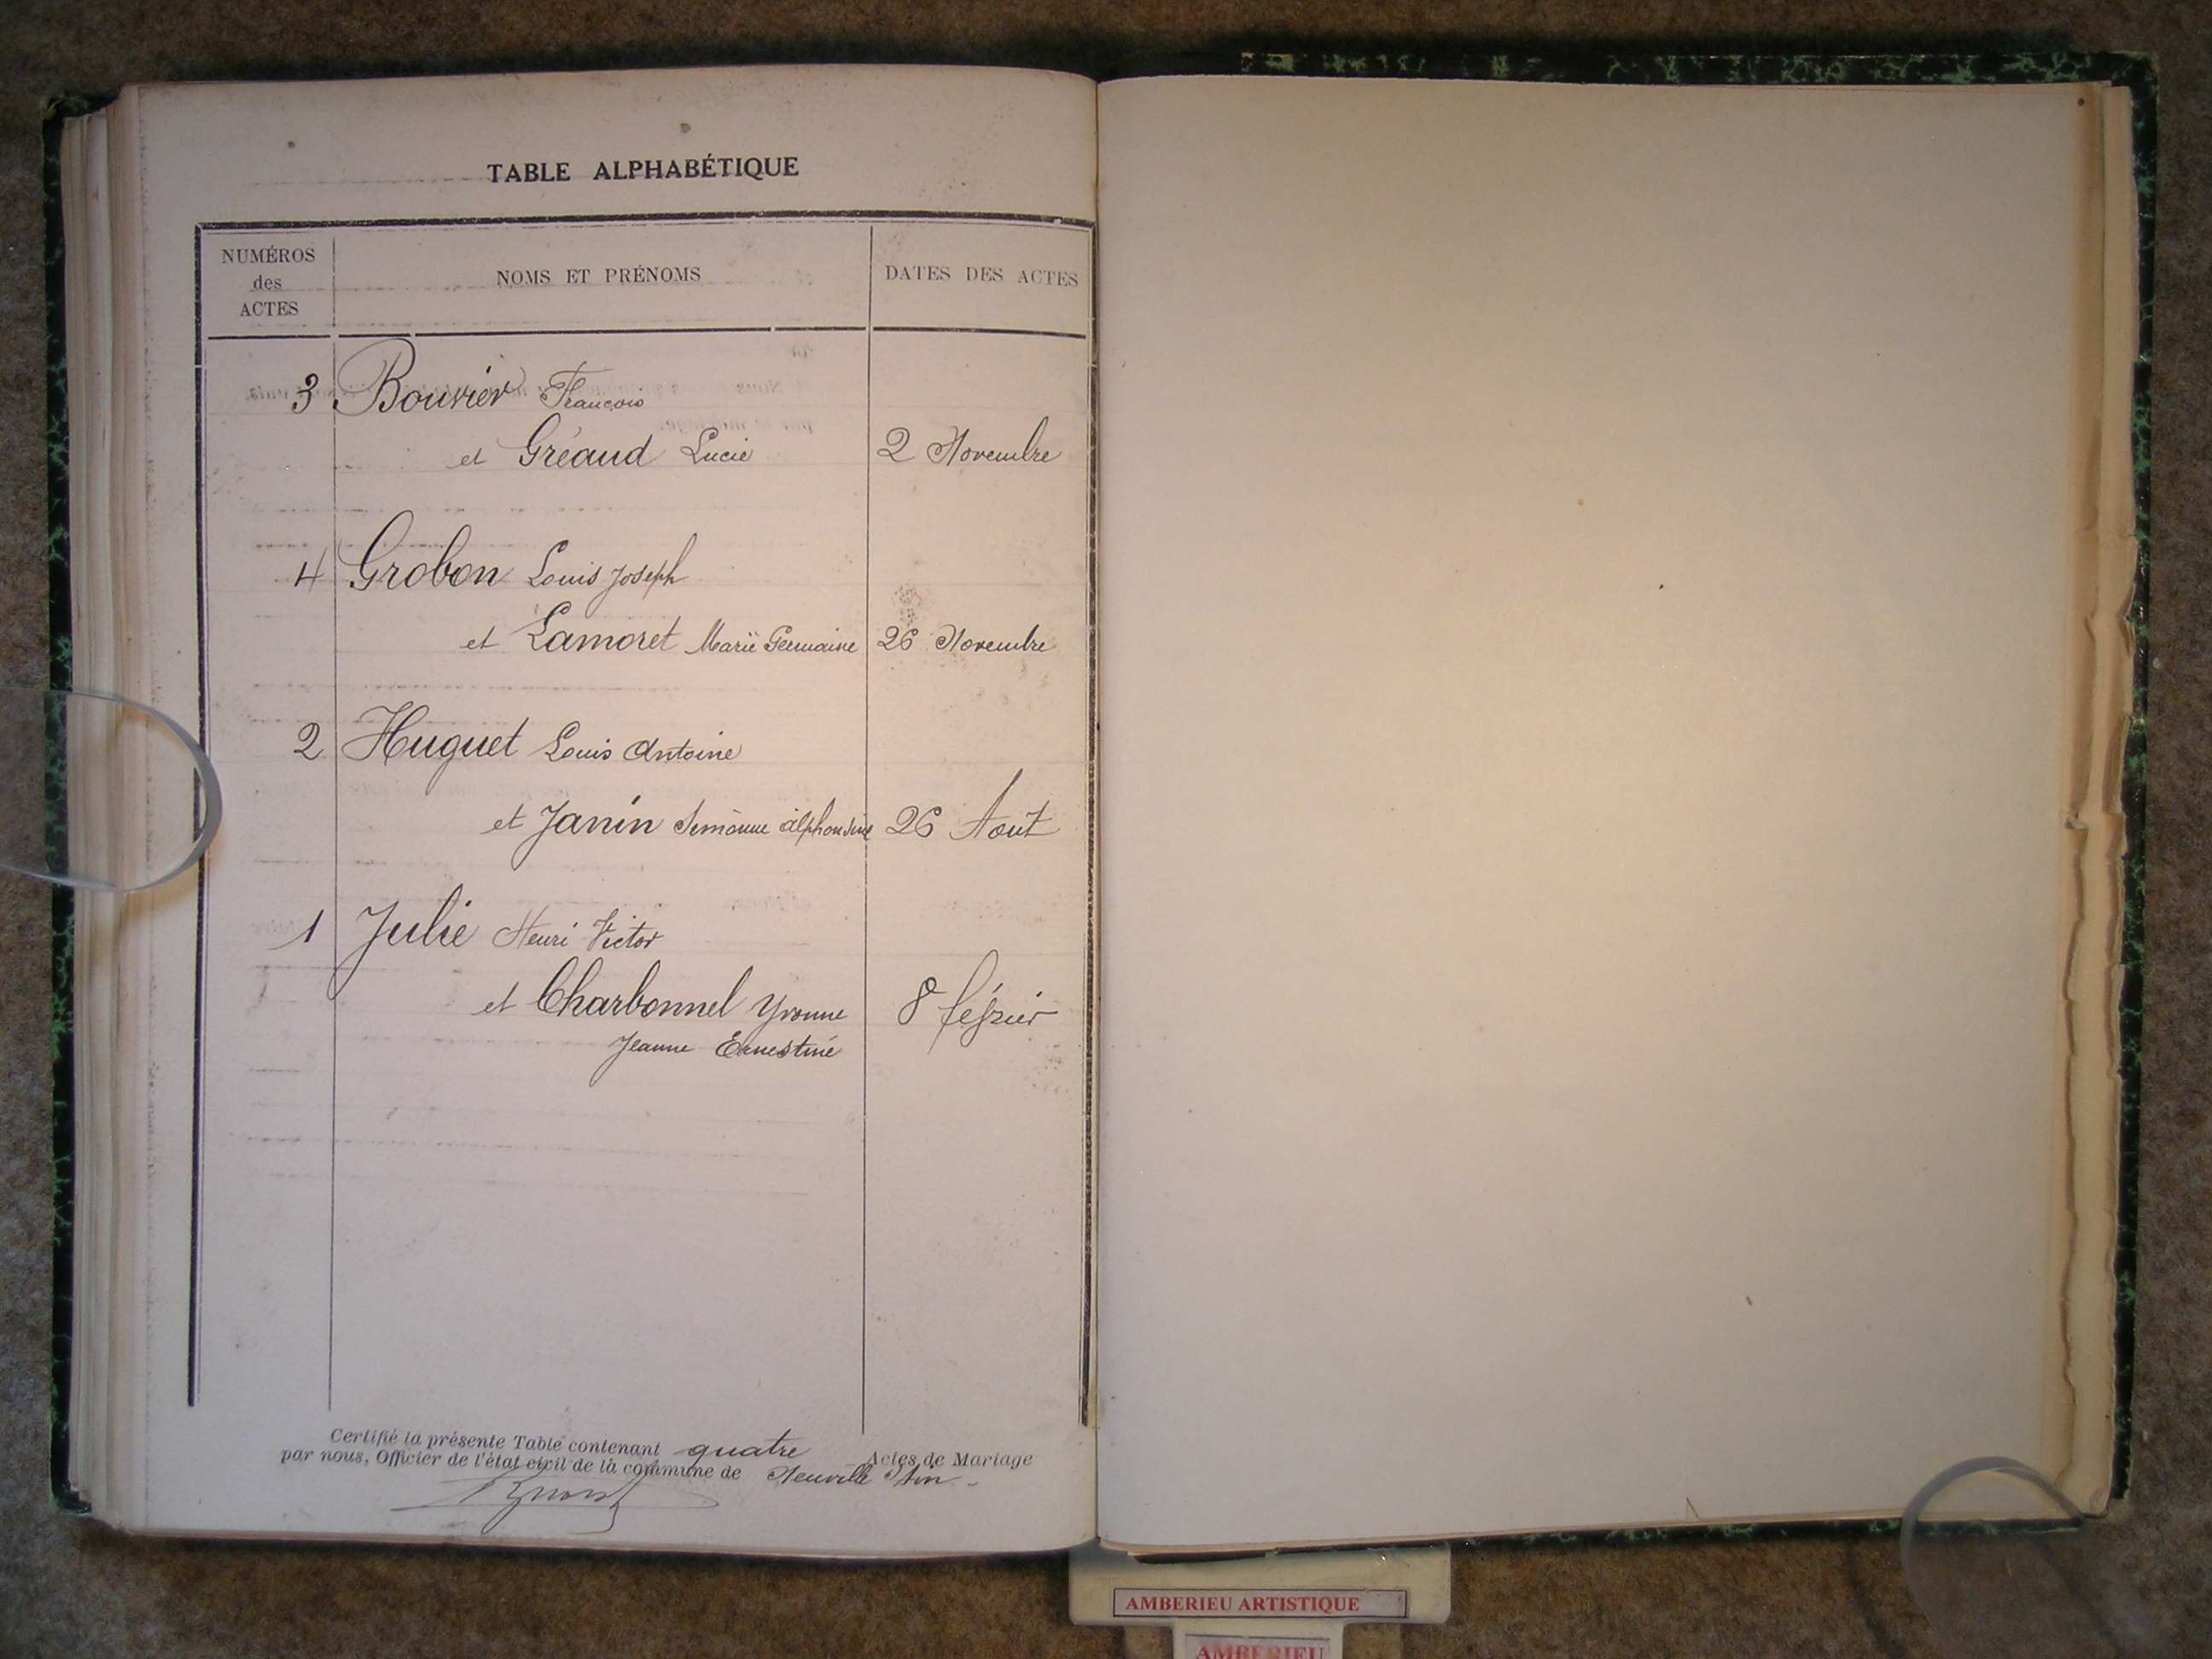 TABLE ALPHABÉTIQUE
NUMÉROS
des
ACTES
NOMS ET PRÉNOMS
DATES DES ACTES
3 Bouvier François
et Gréaud Lucie 2 Novembre
4 Grobon Louis Joseph
et Lamoret Marie Germaine 26 Novembre
2 Huguet Louis Antoine
et Janin Simonne Alphonsine 26 Août
1 Julie Henri Victor
et Charbonnel Yvonne 8 février
Jeanne Ernestine
Certifié la présente Table contenant quatre Actes de Mariage
par nous, Officier de l'état civil de la commune de Neuville s/ Ain
AMBERIEU ARTISTIQUE
AMBERIEU